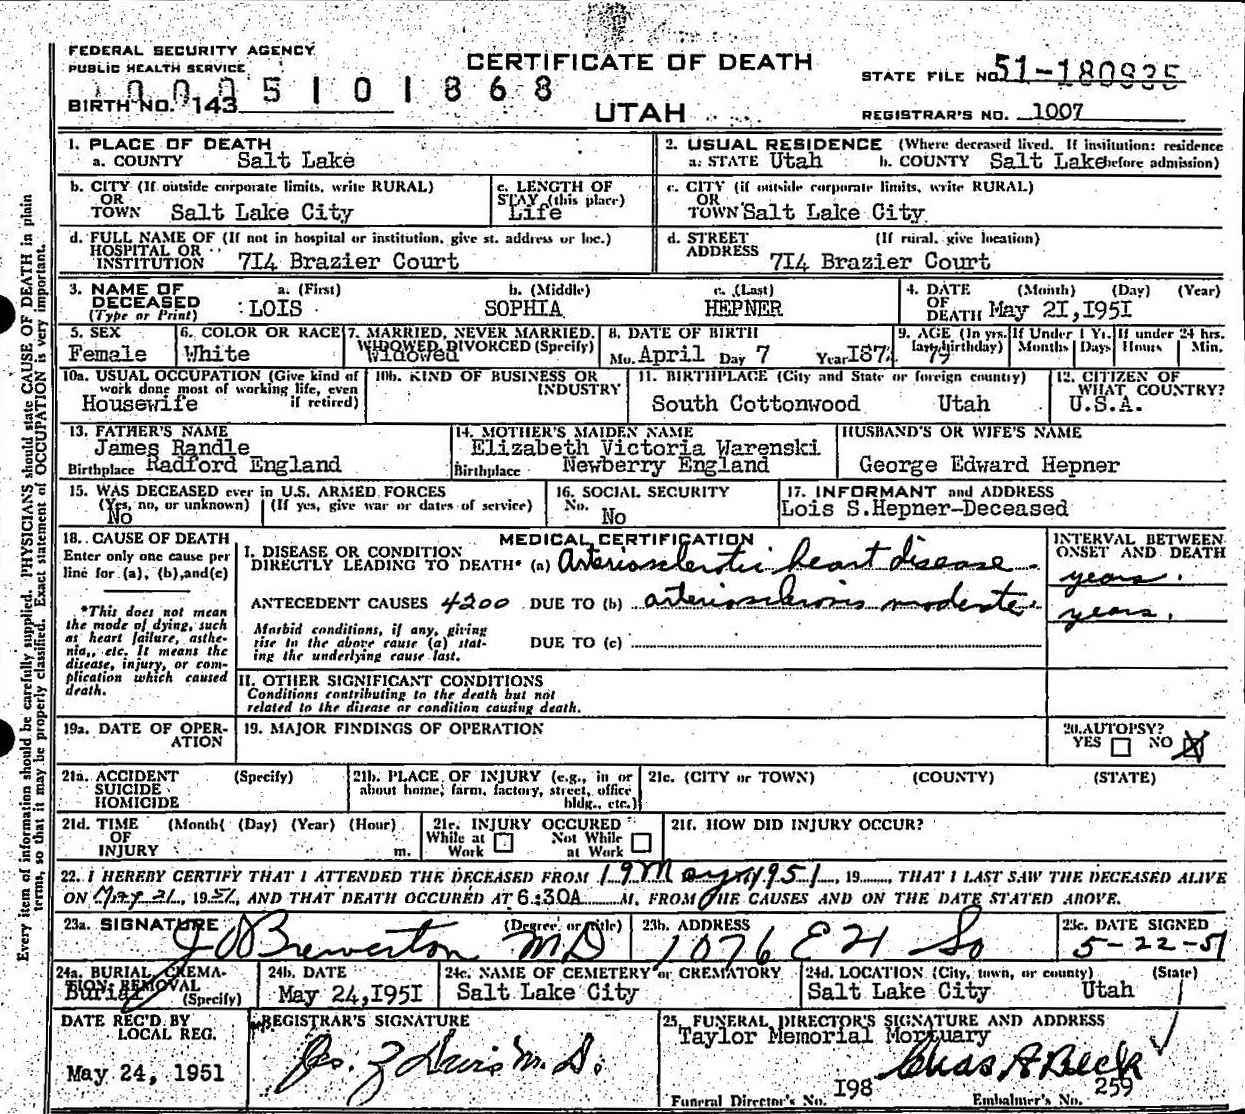 FEDERAL SECURITY AGENCY
PUBLIC HEALTH SERVICE
CERTIFICATE OF DEATH
UTAH
STATE FILE NO. 51-180935
BIRTH NO. 143
5101868
REGISTRAR'S NO. 1007
1. PLACE OF DEATH
a. COUNTY Salt Lake
2. USUAL RESIDENCE (Where deceased lived. If institution: residence before admission)
a. STATE Utah b. COUNTY Salt Lake
b. CITY (If outside corporate limits, write RURAL)
OR
TOWN Salt Lake City
c. LENGTH OF
STAY (this place)
Life
c. CITY (if outside corporate limits, write RURAL)
OR
TOWN Salt Lake City
d. FULL NAME OF (If not in hospital or institution, give st. address or loc.)
HOSPITAL OR
INSTITUTION 7I4 Brazier Court
d. STREET (If rural, give location)
ADDRESS 7I4 Brazier Court
3. NAME OF DECEASED (Type or Print)
a. (First) b. (Middle) c. (Last)
LOIS SOPHIA HEPNER
4. DATE OF DEATH (Month) (Day) (Year)
May 2I,195I
5. SEX
Female
6. COLOR OR RACE
White
7. MARRIED, NEVER MARRIED,
WIDOWED, DIVORCED (Specify)
Widowed
8. DATE OF BIRTH
Mo. April Day 7 Year I87
9. AGE (In yrs. last birthday) 79
If Under 1 Yr. Months Days
If under 24 hrs. Hours Min.
10a. USUAL OCCUPATION (Give kind of
work done most of working life, even
if retired)
Housewife
10b. KIND OF BUSINESS OR
INDUSTRY
11. BIRTHPLACE (City and State or foreign country)
South Cottonwood Utah
12. CITIZEN OF
WHAT COUNTRY?
U.S.A.
13. FATHER'S NAME
James Randle
Birthplace Radford England
14. MOTHER'S MAIDEN NAME
Elizabeth Victoria Warenski
Birthplace Newberry England
HUSBAND'S OR WIFE'S NAME
George Edward Hepner
15. WAS DECEASED ever in U.S. ARMED FORCES
(Yes, no, or unknown) (If yes, give war or dates of service)
No
16. SOCIAL SECURITY
No.
No
17. INFORMANT and ADDRESS
Lois S.Hepner-Deceased
18. CAUSE OF DEATH
Enter only one cause per
line for (a), (b),and(c)
*This does not mean
the mode of dying, such
as heart failure, asthe-
nia,, etc. It means the
disease, injury, or com-
plication which caused
death.
MEDICAL CERTIFICATION
I. DISEASE OR CONDITION
DIRECTLY LEADING TO DEATH* (a) Arteriosclerotic heart disease
ANTECEDENT CAUSES 4200 DUE TO (b) arteriosclerosis moderate
Morbid conditions, if any, giving
rise to the above cause (a) stat-
ing the underlying cause last.
DUE TO (c)
INTERVAL BETWEEN
ONSET AND DEATH
years.
years.
II. OTHER SIGNIFICANT CONDITIONS
Conditions contributing to the death but not
related to the disease or condition causing death.
19a. DATE OF OPER-
ATION
19. MAJOR FINDINGS OF OPERATION
20. AUTOPSY?
YES NO X
21a. ACCIDENT (Specify)
SUICIDE
HOMICIDE
21b. PLACE OF INJURY (e.g., in or
about home, farm, factory, street, office
bldg., etc.)
21c. (CITY or TOWN) (COUNTY) (STATE)
21d. TIME (Month) (Day) (Year) (Hour)
OF
INJURY m.
21e. INJURY OCCURED
While at Work Not While at Work
21f. HOW DID INJURY OCCUR?
22. I HEREBY CERTIFY THAT I ATTENDED THE DECEASED FROM 19 May 1951, 19, THAT I LAST SAW THE DECEASED ALIVE
ON May 21, 1951, AND THAT DEATH OCCURED AT 6:30A M. FROM THE CAUSES AND ON THE DATE STATED ABOVE.
23a. SIGNATURE (Degree or title)
Brewerton MD
23b. ADDRESS
1076 E 21 So
23c. DATE SIGNED
5-22-51
24a. BURIAL, CREMA-
TION, REMOVAL
(Specify)
Burial
24b. DATE
May 24,I95I
24c. NAME OF CEMETERY or CREMATORY
Salt Lake City
24d. LOCATION (City, town, or county) (State)
Salt Lake City Utah
DATE REC'D BY
LOCAL REG.
May 24, 1951
REGISTRAR'S SIGNATURE
M.D.
25. FUNERAL DIRECTOR'S SIGNATURE AND ADDRESS
Taylor Memorial Mortuary
Chas A Beck
Funeral Director's No. I98 Embalmer's No. 259
Every item of information should be carefully supplied. PHYSICIANS should state CAUSE OF DEATH in plain
terms, so that it may be properly classified. Exact statement of OCCUPATION is very important.